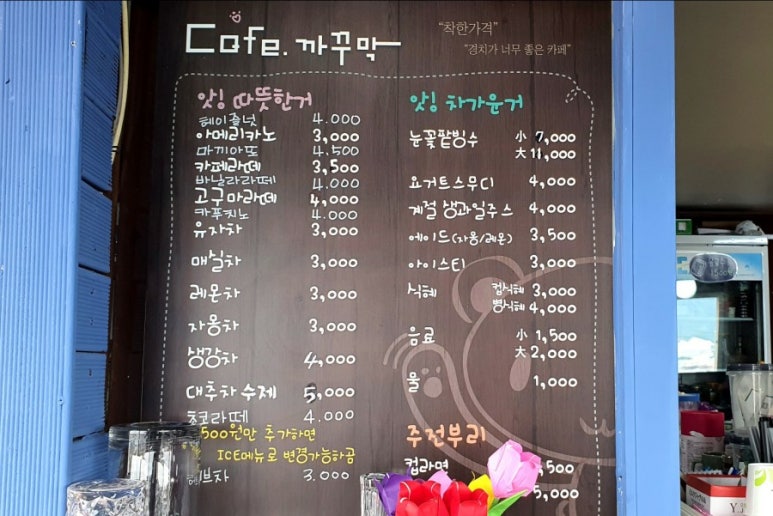 Cafe. 까꾸막
"착한가격"
"경치가 너무 좋은 카페"
앗싱 따뜻한거
헤이즐넛 4.000
아메리카노 3,000
마끼아또 4.500
카페라떼 3,500
바닐라라떼 4.000
고구마라떼 4,000
카푸치노 4.000
유자차 3,000
매실차 3,000
레몬차 3,000
자몽차 3,000
생강차 4,000
대추차 수제 5,000
쵸코라떼 4.000
500원만 추가하면
ICE메뉴로 변경가능하곰
브차 3.000
앗싱 차가운거
눈꽃팥빙수 小 7,000
大 11,000
요거트스무디 4,000
계절 생과일주스 4,000
에이드(자몽/레몬) 3,500
아이스티 3,000
식혜 컵식혜 3,000
병식혜 4,000
음료 小 1,500
大 2,000
물 1,000
주전부리
컵라면 ,500
5,000